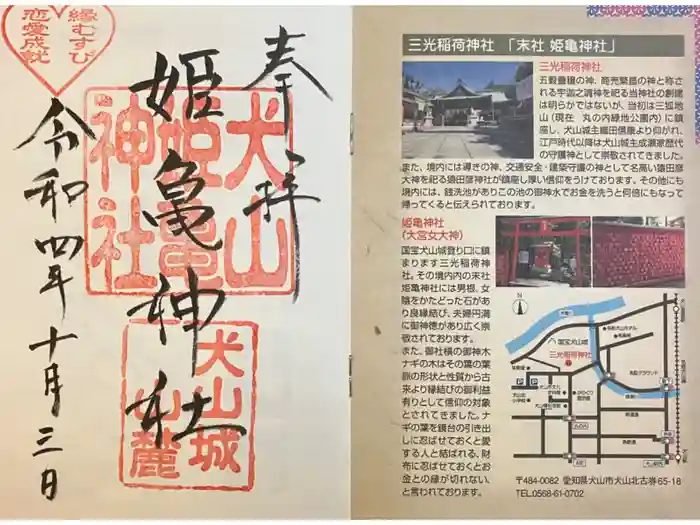 縁むすび
恋愛成就
奉拝
犬山
姫亀
神社
姫亀神社
犬山城
山麓
令和四年十月三日
三光稲荷神社 「末社 姫亀神社」
三光稲荷神社
五穀豊穣の神、商売繁昌の神と称される宇迦之御魂神を祀る当神社の創建は明らかではないが、当初は三狐地山(現在 丸の内緑地公園内)に鎮座し、犬山城主織田信康より仰がれ、江戸時代以降は犬山城主成瀬家歴代の守護神として崇敬されてきました。
また、境内には導きの神、交通安全・建築守護の神として名高い猿田彦大神を祀る猿田彦神社が鎮座し厚い信仰をうけております。その他にも境内には、銭洗池がありこの池の御神水でお金を洗うと何倍にもなって帰ってくると伝えられております。
姫亀神社
(大宮女大神)
国宝犬山城登り口に鎮まります三光稲荷神社。その境内内の末社姫亀神社には男根、女陰をかたどった石があり良縁結び、夫婦円満に御神徳があり広く崇敬されております。
また、御社横の御神木ナギの木はその葉の葉脈の形状と性質から古来より縁結びの御利益有りとして信仰の対象とされてきました。ナギの葉を鏡台の引き出しに忍ばせておくと愛する人と結ばれる、財布に忍ばせておくとお金との縁が切れない、と言われております。
N
国宝犬山城
三光稲荷神社
P
P
〒484-0082 愛知県犬山市犬山北古券65-18
TEL.0568-61-0702